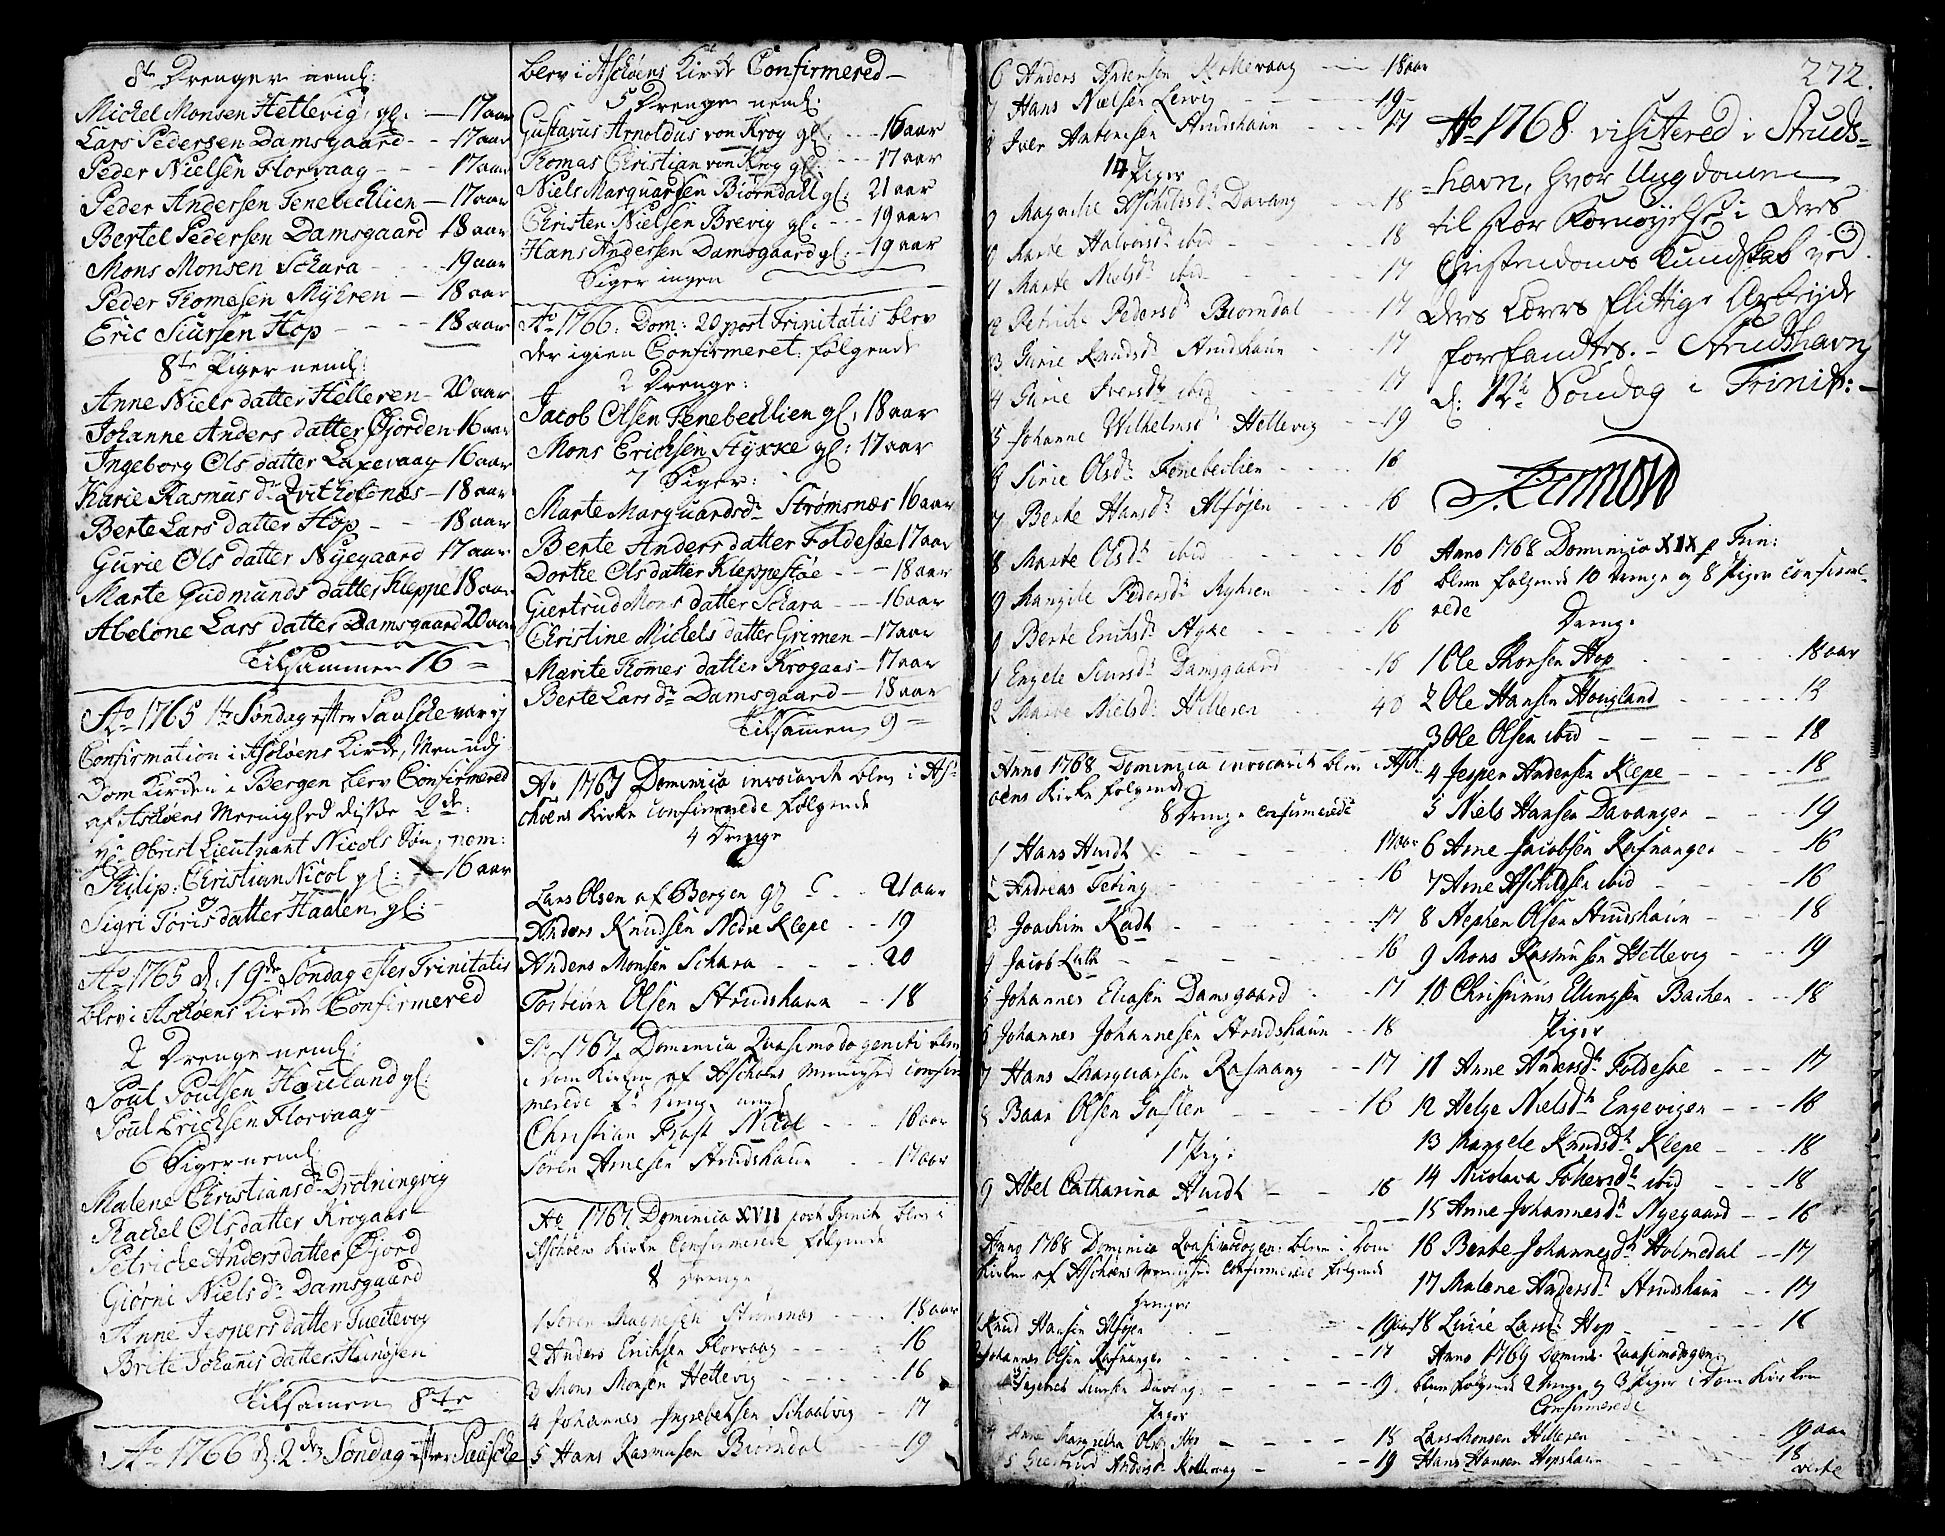 8te Drenger neml:
Michel Monsen Hettevig, gl: — 17 aar
Lars Pedersen Damsgaard - - 17 aar
Peder Nielsen Florvaag - - - 17 aar
Peder Andersen Fenebechlien — 17 aar
Bertel Pedersen Damsgaard 18 aar
Mons Monsen Schara - - - 19 aar
Peder Thomesen Myhren — 18 aar
Eric Siursen Hop - - - - 18 aar
8te Piger neml:
Anne Niels datter Helleren - 20 aar
Johanne Anders datter Øjorden 16 aar
Ingeborg Ols datter Laxevaag 16 aar
Karie Rasmus dr. Qvitholtnæs - 18 aar
Berte Lars datter Hop - - - 18 aar
Gurie Ols datter Nyegaard 17 aar
Marte Gudmunds datter Kleppe 18 aar
Abelone Lars datter Damsgaard 20 aar
Tilsammen 16 =
Ao 1765 1te Søndag efter Paasche var ij
Confirmation i Aschøens Kirke, Men udj
Dom Kirken i Bergen blev Confirmered
af Aschøens Meenighed disse 2de:
Obrist Lieutnant Nicols Søn, nem:
Philip Christian Nicol gl: — 16 aar
Sigri Toris datter Haalen, gl: -
Ao 1765 d. 19de Søndag efter Trinitatis
blev i Aschøens Kirke Confirmered
2 Drenge neml:
Poul Poulsen Houland gl:
Poul Erichsen Florvaag -
6 Piger neml
Malene Christiansd. Drotningvig
Rachel Ols datter Krogaas
Petriche Anders datter Øjord
Giørni Niels dr. Damsgaard
Anne Jespers datter Tueitevog
Brite Johannis datter Hanøsen
Tilsamen 8te
Ao 1766 d: 2den Søndag efter Paasche
blev i Aschøens Kirke Confirmered —
5 Drenge neml:
Gustavus Arnoldus von Krog gl: - - 16 aar
Thomas Christian von Krog gl: - - 17 aar
Niels Marquardsen Biørndall gl: 21 aar
Christen Nielsen Brevig gl: - - 19 aar
Hans Andersen Damsgaard gl: - 19 aar
Piger ingen
Ao 1766. Dom: 20 post Trinitatis blev
der igien Confirmeret følgende
2 Drenge:
Jacob Olsen Fenebechlien gl: 18 aar
Mons Erichsen Stykke gl: 17 aar
7 Piger:
Marte Marquardsdr. Strømsnæs 16 aar
Berte Anders datter Foldesøe 17 aar
Dortie Ols datter Kleppestøe - - 18 aar
Giertrud Mons datter Schara - - 16 aar
Christine Michels datter Grimen - 17 aar
Marite Thomes datter Krogaas - 17 aar
Berte Lars dr. Damsgaard — 18 aar
Tilsamen 9 =
Ao 1767 Dominica invocavit blev i As-
chøens Kirke confirmerede følgende
4 Drenge
Lars Olsen af Bergen - - 21 aar
Anders Knudsen Nedre Klepe - - 19
Anders Monsen Schara - - - 20
Torbiørn Olsen Strudshaun - - 18
Ao 1767. Dominica Quasimodogeniti blev
i Dom Kirken af Aschøens Menighed confir-
merede 2de Drenge neml
Christian Frost Nicol - - - 18 aar
Søren Arnesen Strudshaun - - 17 aar
Ao 1767. Dominica XVII post Trinit. blev i
Aschøens Kirke Confirmerede følgende
8 Drenge
1 Søren Magnesen Strømsnæs - - - 18 aar
2 Anders Erichsen Florvaag - - - 16
3 Mons Monsen Hettevig - - - 16
4 Johannes Ingebretsen Schaalvig - 17
5 Hans Rasmusen Biørndal - - - 19
6 Anders Andersen Kollevaag - - 18 aar
7 Hans Nielsen Lervig - - - 19 -
8 Iver Antonisen Strudshaun - - - 17
14 Piger
9 Magnilie Aschildsdr. Davang - - 18
10 Marte Halvorsdr. ibid - - - 18
11 Marte Nielsdr. ibid - - - 17
12 Petriche Pedersdr. Biørndal - - 17
13 Gurie Randsdr. Strudshaun - - 17
4 Gurie Iversdr. ibid - - - 17
15 Johanne Wilhelmsdr. Hettevig - - 19
16 Sirie Olsdr. Fenebechlien - - - 16
7 Berte Hansdr. Alføjen - - - 16
18 Marte Olsdr. ibid - - - 16
19 Mangele Pedersdr. Myhren - - - 16
0 Berte Eriksdr. Stykke - - - 16
1 Engele Siursdr. Damsgaard - - 16
2 Marte Nielsdr. Helleren - - - 40
Anno 1768 Dominica invocavit blev i Asch-
øens Kirke følgende
8 Drenge confirmerede
1 Hans Hundt - - - 17 aar
2 Andreas Feding - - - 16
3 Joachim Radt - - - 17
4 Jacob Luth - - - 16
5 Johannes Eliasen Damsgaard - 17
6 Johannes Johannesen Strudshaun - - 18
7 Hans Marquarsen Rafnang - - 17
8 Baar Olsen Gusten - - - 16
1 Pige
9 Abel Catharina Hundt - - - 16
Anno 1768 Dominica Quasimodogen: blev i Dom
Kirken af Aschøens Menighed confirmerede følgende
Drenger
1 Knud Hansen Alføjen - - - 19 aar
2 Johannes Olsen Rafnanger - - - 17
- - - 19.
Piger
4 Anne Margretha Olsdr. Hop - - - 18
5 Giertrud Andersdr. Kollevaag - - - 19
272.
Ao 1768. visitered i Struds-
-havn, hvor Ungdommen
til stor Fornøyelse i deres
Christendoms Kundskab ved
deres Læreres flittige Arbeyde
forefandtes. - Strudshavn
d: 12te Søndag i Trinit: —
Anno 1768 Dominica XIX p Trin:
bleve følgende 10 Drenge og 8 Piger confirme-
rede
Drenge
1 Ole Thorsen Hop - - - 18 aar
2 Ole Hansen Hougland - - - 17
3 Ole Olsen ibid - - - - 18
4 Jesper Andersen Klepe - - - 18
5 Niels Hansen Davanger - - - 19
6 Arne Jacobsen Rafnanger - - 16
7 Arne Aschildsen ibid - - - 16
8 Stephen Olsen Strudshaun - - - 18
9 Mons Rasmusen Hettevig - - - 19
10 Christinus Ellingsen Bachen - - - 18
Piger
11 Anne Andersdr. Foldesøe - - - 17
12 Helge Nielsdr. Engevigen - - - 16
13 Mangele Knudsdr. Klepe - - - 18
14 Nicolava Tostensdr. ibid - - - 18
15 Anne Johannesdr. Nyegaard - - - 16
16 Berte Johannesdr. Holmedal - - 17
17 Malene Andersdr. Strudshaun - - 17
18 Lucie Larsd: Hop - - - 16
Anno 1769 Domin: Quasimodogen:
bleve følgende 2 Drenge og 3 Piger i Dom Kirken
Confirmerede
Lars Monsen Helleren - - - 19 aar
Hans Hansen Hopshaun - - - 18
verte